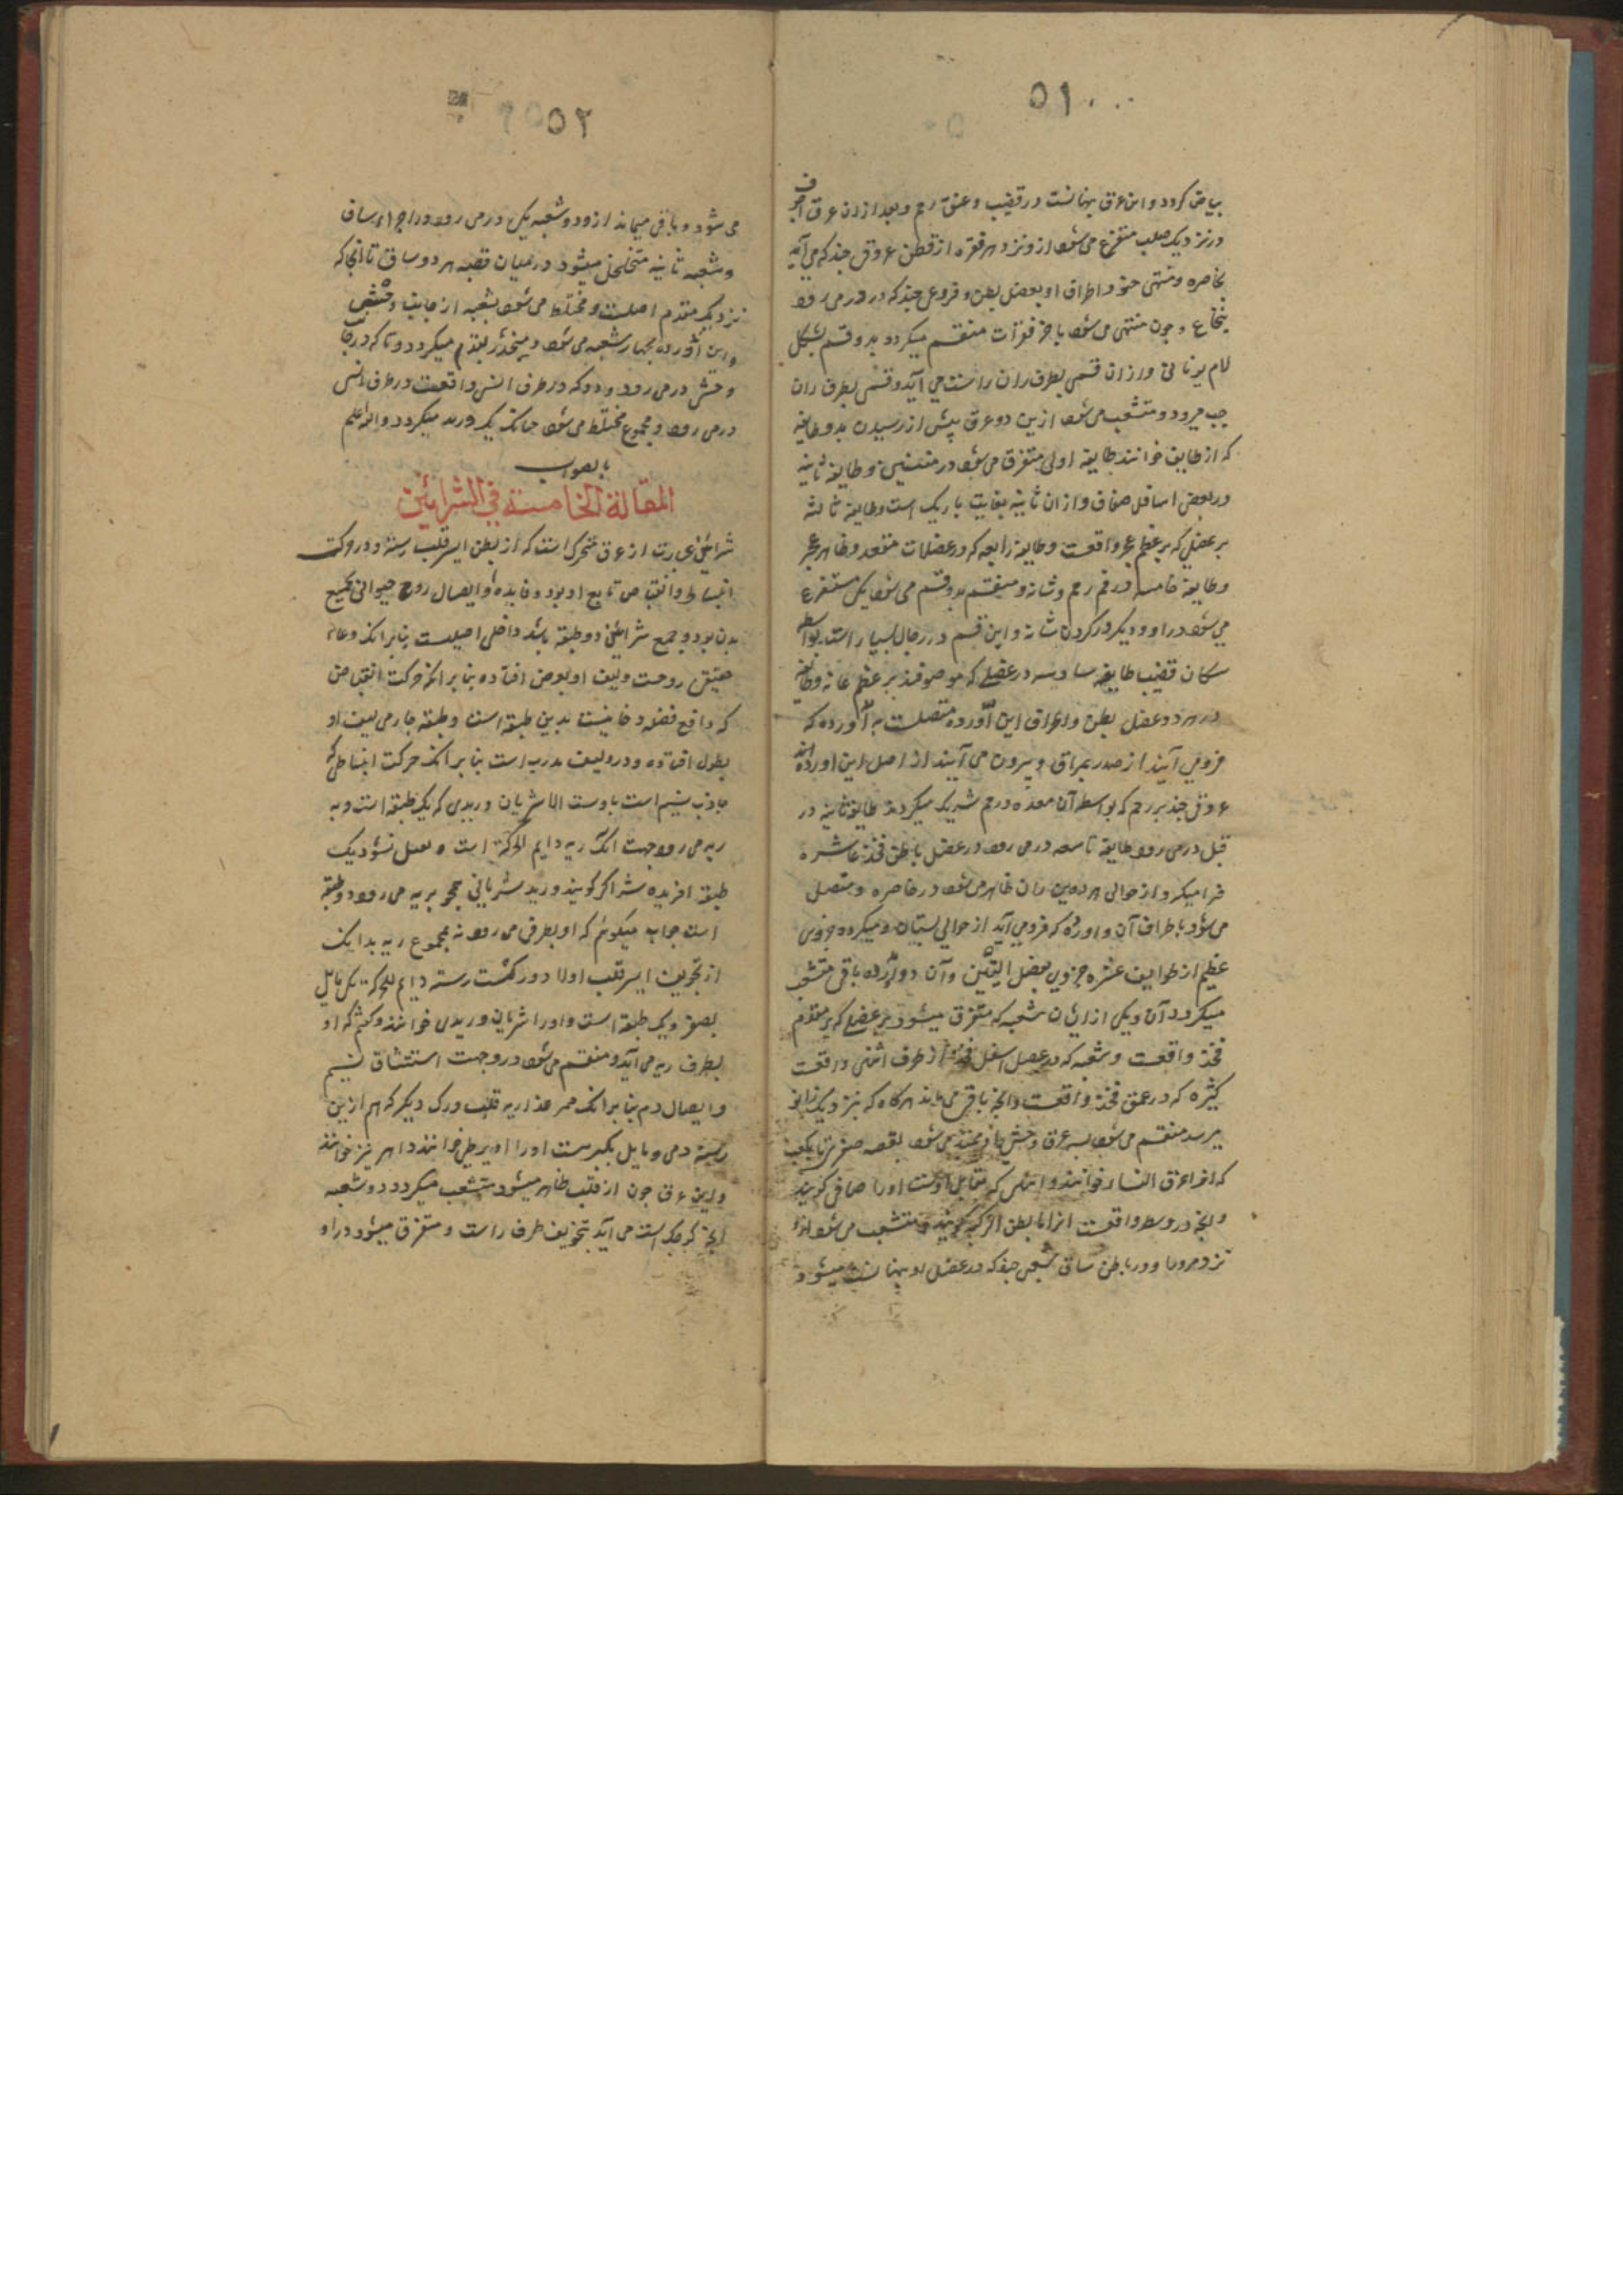 ۵۱
بیاض گردد و این عرق پنهانست در قضیب و عنق رحم و بعد ازان عرق اجوف
در نزدیک صلب متفرع می شود ازو نزد هر فقره از قطن عروق چند که می آید
بخاصره و منتهی و اطراف او بعضل بطن و فروعی چند که در می رود
بنخاع و چون منتهی می شود باخر فقرات منقسم میگردد بدو قسم بشکل
لام یونانی و ازان قسمی بطرف ران راست می آید و قسمی بطرف ران
چپ میرود و متشعب می شود ازین دو عرق پیش از رسیدن بدو طایفه
که از طایف خوانند طایفه اولی متفرق می شود در متنین و طایفه ثانیه
در بعض اسافل صفاق و ازان ثانیه بغایت باریک است و طایفه ثالثه
بر عضلی که بر عظم عجز واقعست و طایفه رابعه که در عضلات مقعد و ظاهر عجز
و طایفه خامسه در فم رحم و مثانه و منقسم بدو قسم می شود یکی متفرع
می شود در او و دیگر در گردن مثانه و این قسم در رجال بسیار است بواسطه
مکان قضیب طایفه سادسه در عضلی که موضوعند بر عظم عانه و طایفه
در هر دو عضل بطن و اطراف این آورده متصلست به آورده که
فرومی آیند از صدر بمراق و بیرون می آیند از اصل این اورده
عروقی چند بر رحم که بواسطه آن معده و رحم شریک میگردند طایفه ثامنه در
قبل در می رود طایفه تاسعه در می رود در عضل باطن فخذ عاشره
فرا میگرد از حوالی ران ظاهر می شود در خاصره و متصل
می شود باطراف آن و اورده که فرومی آید از حوالی پستان و میگردد جزوی
عظیم از طوایف عشره جزوی بعضل الیتین و آن دو آورده باقی متشعب
میگردد آن و یکی ازیشان شعبه که متفرق میشود بر عضلی که بر مقدم
فخذ واقعست و شعبه که در عضل اسفل فخذ از طرف انسی واقعست
کثیره که در عمق فخذ واقعست و آنچه باقی می ماند هر گاه که بنزدیک زانو
میرسد منقسم می شود بسه عرق وحشی و او ممتد می شود بقصبه صغری تا بکعب
که انرا عرق النسا خوانند و انسی که مقابل اوست اورا صافن گویند
و آنچه در وسط واقعست انرا مابطن الرکبه گویند و متشعب می شود ازو
نزد مرور او در باطن ساق شعبی چند که در عضل او پنهانست میشود
۵۲
می شود و باقی میماند ازو دو شعبه یکی در می رود در اجزاء ساق
و شعبه ثانیه متخلخل میشود در میان قصبه هر دو ساق تا آنجا که
نزدیک مقدم اصلست و مختلط می شود بشعبه از جانب وحشی
و این آورده بچهار شعبه می شود و منحدر بقدم میگردد و تا که در جانب
وحشی در می رود و دو که در طرف انسی واقعست در طرف انسی
در می رود و مجموع مختلط می شود چنانک یک ورید میگردد والله اعلم
بالصواب
المقالة الخامسة فی الشرائین
شرائین عبارت از عرق متحرک است که از بطن ایسر قلب رسته و در حرکت
انبساط و انقباض تابع او بود و فایده او ایصال روح حیوانی بجمیع
بدن بود و جمیع شرائین دو طبقه باشد داخلی اصلبست بنابر آنک وعاء
حقیقی روحست و لیف او بعرض افتاده بنابر آنکه حرکت انقباض
که دافع فضله دخانیست بدین طبقه است و طبقه خارجی لیف او
بطول افتاده و درو لیف مورب است بنابر آنک حرکت انبساطی که
جاذب نسیم است باوست الا شریان وریدی که یک طبقه است و به
ریه می رود جهت آنک ریه دایم الحرکة است و معطل نشود یک
طبقه افریده شد اگر گویند ورید شریانی هم بریه می رود و دو طبقه
است جواب میگوئیم که او بطرفی می رود نه بمجموع ریه بدانک
از تجویف ایسر قلب اولا دو رگست رسته دایم الحرکة یکی مایل
بصغر و یک طبقه است و اورا شریان وریدی خوانند و گفتیم که او
بطرف ریه می آید و منقسم می شود درو جهت استنشاق نسیم
و ایصال دم بنابر آنک ممر غذا ریه قلب و رگ دیگر که هم ازین
رسته دمی و مایل بکبرست اورا اورطی خوانند و ابهر نیز خوانند
و این عرق چون از قلب ظاهر میشود متشعب میگردد دو شعبه
آنچه کوچک است می آید بتجویف طرف راست و متفرق میشود در او